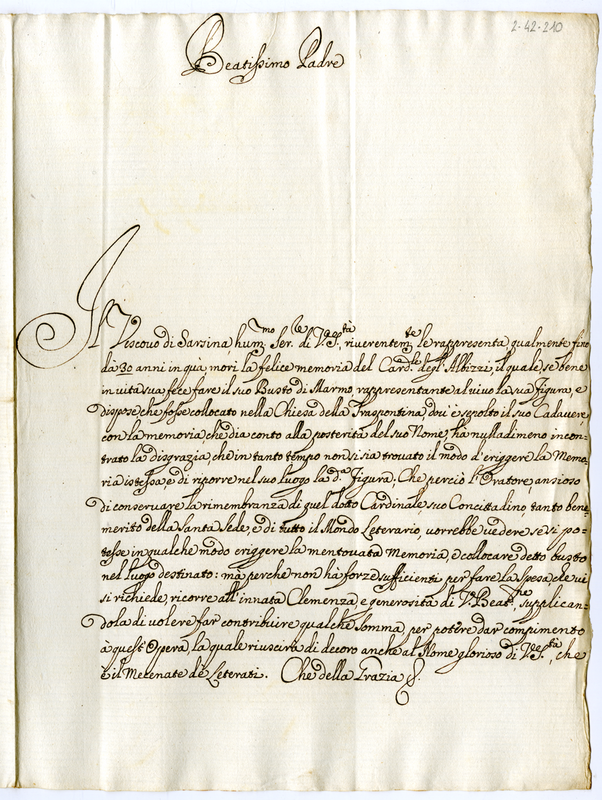 2-42-210
Beatissimo Padre
Il Vescovo di Sarsina, hum.mo Ser.re di V. S.tà, riverentem.te le rappresenta, qualmente fino
dà 30 anni in quà, morì la felice memoria del Card.le degl'Albizzi, il quale, se bene
in vita sua fece fare il suo Busto di Marmo rappresentante al vivo la sua figura, e
dispose che fosse collocato nella Chiesa della Traspontina, dov'è sepolto il suo Cadavere,
con la memoria, che dia conto alla posterità del suo Nome, hà nulladimeno incon=
trato la disgrazia, che in tanto tempo non si sia trovato il modo d'eriggere la Memo=
ria istessa, e di riporre nel suo luogo la d.a figura. Che perciò l'Oratore, ansioso
di conservare la rimembranza di quel dotto Cardinale suo Concittadino, tanto bene
merito della Santa Sede, e di tutto il Mondo Leterario, vorrebbe vedere se si po=
tesse in qualche modo eriggere la mentovata Memoria, e collocare detto busto
nel luogo destinato: mà perche non hà forze sufficienti per fare la spesa che vi
si richiede, ricorre all'innata Clemenza, e generosità di V. Beat.ne, supplican=
dola di volere far contribuire qualche somma, per potere dar compimento
à quest'Opera, la quale riuscirà di decoro anche al Nome glorioso di V. S.tà, che
è il Mecenate de Leterati. Che della Grazia &.